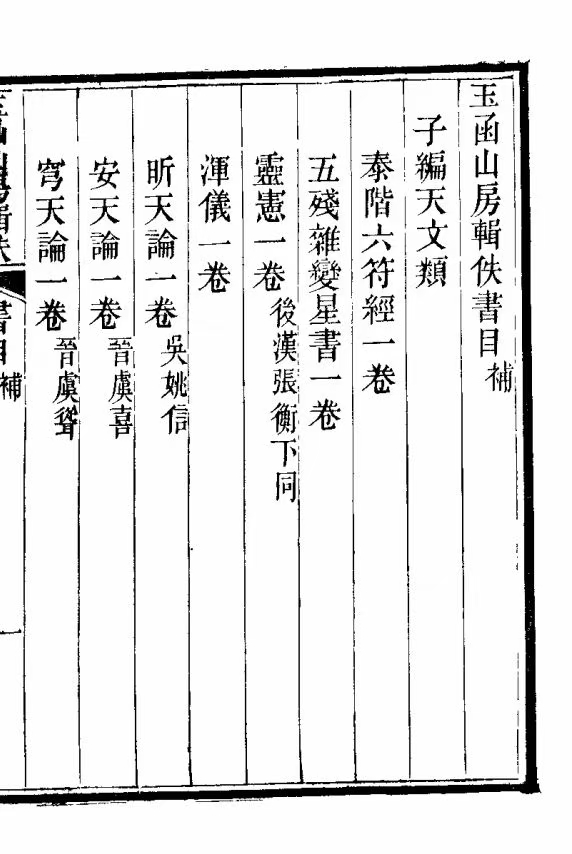 玉函山房輯佚書目補
子編天文類
泰階六符經一卷
五殘雜變星書一卷
靈憲一卷後漢張衡下同
渾儀一卷
昕天論一卷吳姚信
安天論一卷晉虞喜
穹天論一卷晉虞聳
玉函山房輯佚書目補
一